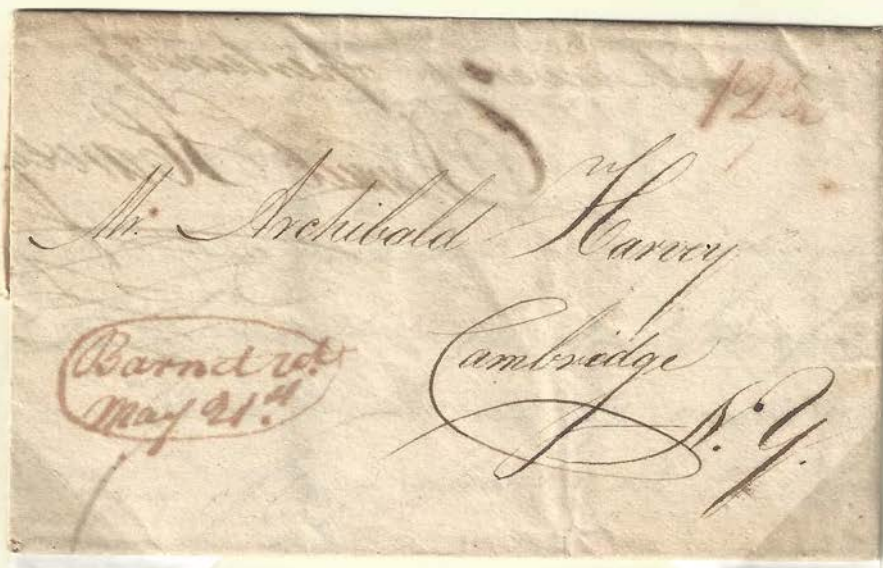 12½
Mr. Archibald Harvey
Cambridge
N. Y.
Barnet Vt.
May 21st